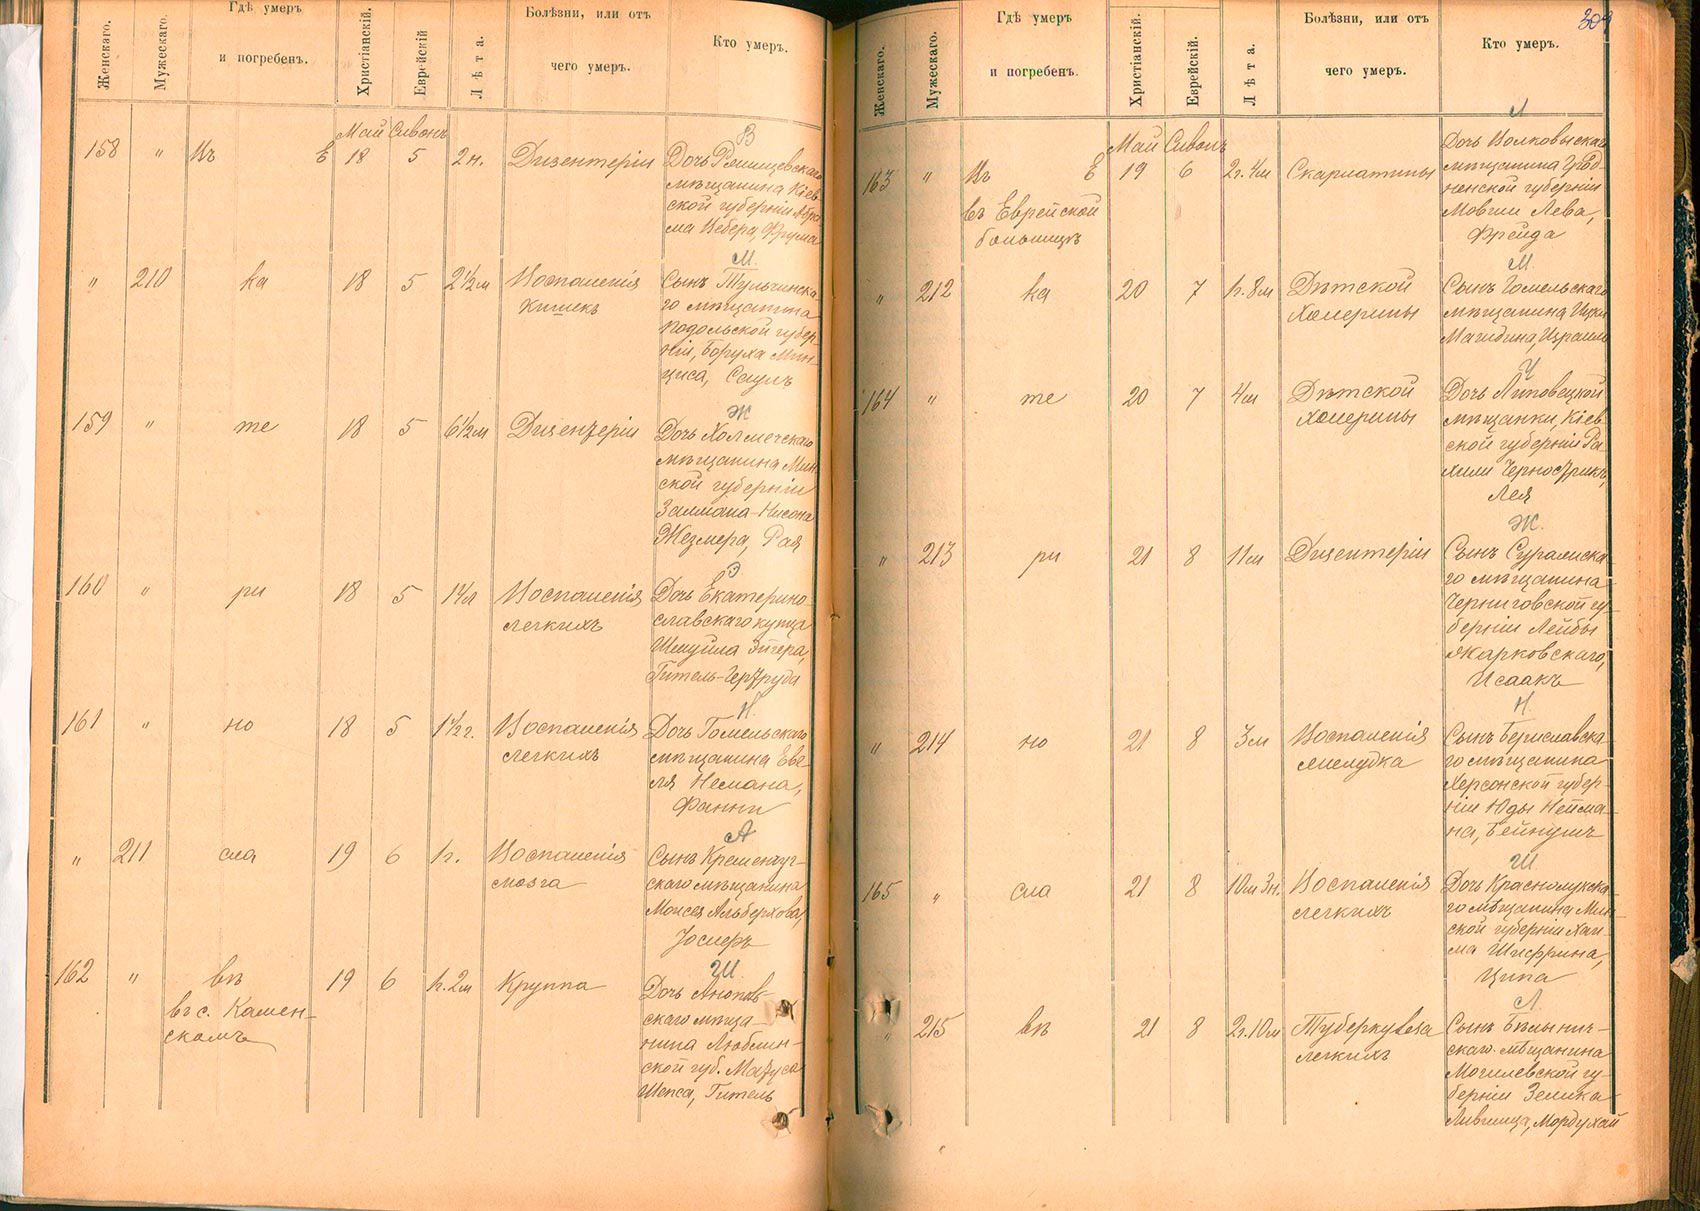 Женскаго.
Мужескаго.
Гдѣ умеръ
и погребенъ.
Христіанскій.
Еврейскій
Лѣта.
Болѣзни, или отъ
чего умеръ.
Кто умеръ.
Май Сивонъ
В
158 " Въ Е 18 5 2 н. Дизентеріи
Дочь Ржищевскаго
мѣщанина Кіев-
ской губерніи Абра-
ма Вебера, Фрума
М.
" 210 ка 18 5 2½ м Воспаленія
кишекъ
Сынъ Тульчинска-
го мѣщанина
Подольской губер-
ніи, Боруха Мин-
циса, Саулъ
Ж
159 " те 18 5 6½ м Дизентеріи
Дочь Холмечскаго
мѣщанина Мин-
ской губерніи
Залмана-Нисона
Жезмера, Рая
Э
160 " ри 18 5 Воспаленія
легкихъ
Дочь Екатерино-
славскаго купца
Шмуйла Эйгера,
Гитель-Гертруда
Н.
161 " но 18 5 1½ г. Воспаленія
легкихъ
Дочь Гомельскаго
мѣщанина Еве-
ля Немана,
Фанни
А
" 211 сла 19 6 1 г. Воспаленія
мозга
Сынъ Кременчуг-
скаго мѣщанина
Моисея Альберхова,
Іосифъ
Ш.
162 " вѣ 19 6 1 г. 2 м Круппа
въ с. Камен-
скомъ
Дочь
скаго мѣща-
нина Люблин-
ской губ. Матуса
Шепса, Гитель
309
Женскаго.
Мужескаго.
Гдѣ умеръ
и погребенъ.
Христіанскій.
Еврейскій.
Лѣта.
Болѣзни, или отъ
чего умеръ.
Кто умеръ.
Май Сивонъ
Л
163 " Въ Е 19 6 2 г. 4 м Скарлатины
въ Еврейской
больницѣ
Дочь Волковыскаго
мѣщанина Грод-
ненской губерніи
Мовши Лева,
Фрейда
М.
" 212 ка 20 7 1 г. 8 м Дѣтской
холерины
Сынъ Гомельскаго
мѣщанина Ицки
Магидина, Израиль
Ч
164 " те 20 7 4 м Дѣтской
холерины
Дочь Липовецкой
мѣщанки, Кіев-
ской губерніи Ра-
хили
Лея
Ж.
" 213 ри 21 8 11 м Дизентеріи
Сынъ Суражска-
го мѣщанина
Черниговской гу-
берніи Лейбы
Жарковскаго,
Исаакъ
Н.
" 214 но 21 8 3 м Воспаленія
желудка
Сынъ Бериславска-
го мѣщанина
Херсонской губер-
ніи Юды Нейма-
на, Бейнушъ
Ш
165 " сла 21 8 10 м 3 н. Воспаленія
легкихъ
Дочь Краснолукска-
го мѣщанина Мин-
ской губерніи Хаи-
ма Шифрина,
Ципа
Л
" 215 вѣ 21 8 2 г. 10 м Туберкулеза
легкихъ
Сынъ Бѣлынич-
скаго мѣщанина
Могилевской гу-
берніи Зелика
Лившица, Мордухай